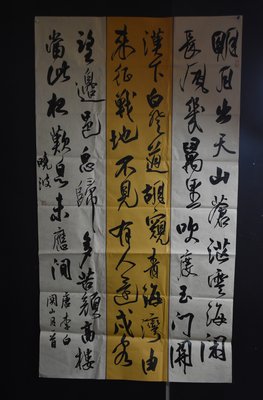 明月出天山蒼茫雲海間
長風幾萬里吹度玉門關
漢下白登道胡窺青海灣由
來征戰地不見有人還戍客
望邊邑思歸多苦顏高樓
當此夜歎息未應閒
唐李白
關山月首
曉波